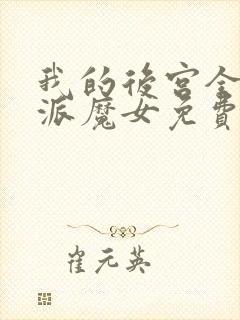 我的後宮全
派魔女免費
崔元英